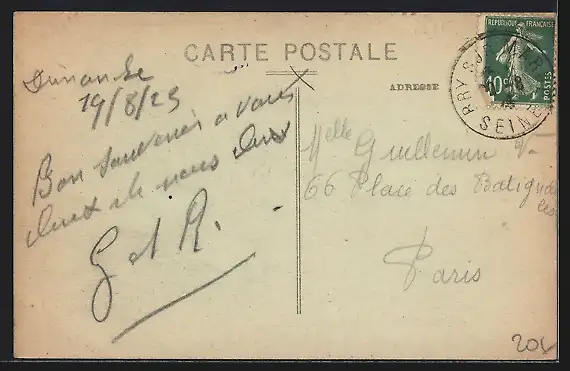 CARTE POSTALE
ADRESSE
REPUBLIQUE FRANÇAISE
10c
POSTES
SEINE
Dimanche
19/8/23
Bon souvenir à vous
deux de nous deux
G et R.
Melle Guillemin
66 Place des Batignolles
Paris
20